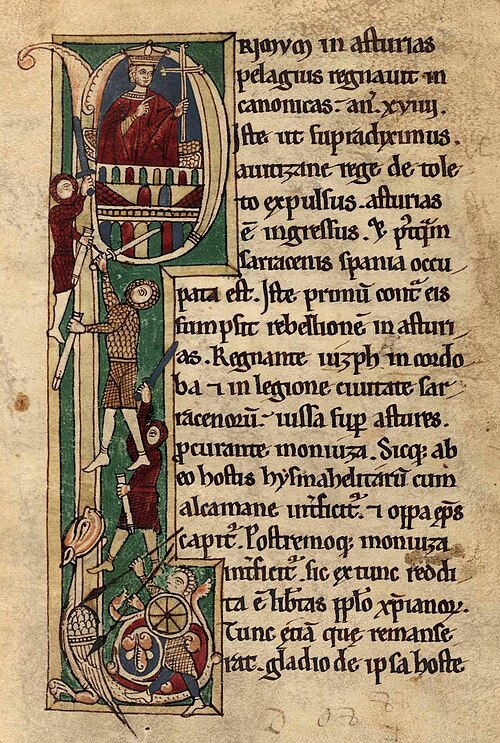 PRIMUM in asturias
pelagius regnauit in
canonicas. an̄. xviiii.
Iste ut supradiximus.
a uitizane rege de tole
to expulsus. asturias
ē ingressus. & p̄tqm̄
sarracenis spania occu
pata est. Iste primū cont̄ eis
sumpsit rebellionē in asturi
as. Regnante iuzeph in cordo
ba ⁊ in legione ciuitate sar
racenorū iussa sup̄ astures.
ꝓcurante monnuza. Sicq; ab
eo hostis hysmahelitarū cum
alcamane int̄ficit̄. ⁊ oppa ep̄s
capit̄. Postremoq; monnuza
int̄ficit̄. sic ex tunc reddi
ta ē lib̄tas pp̄lo xp̄ianoꝝ.
Tunc etiā que remanse
rat. gladio de ipsa hoste